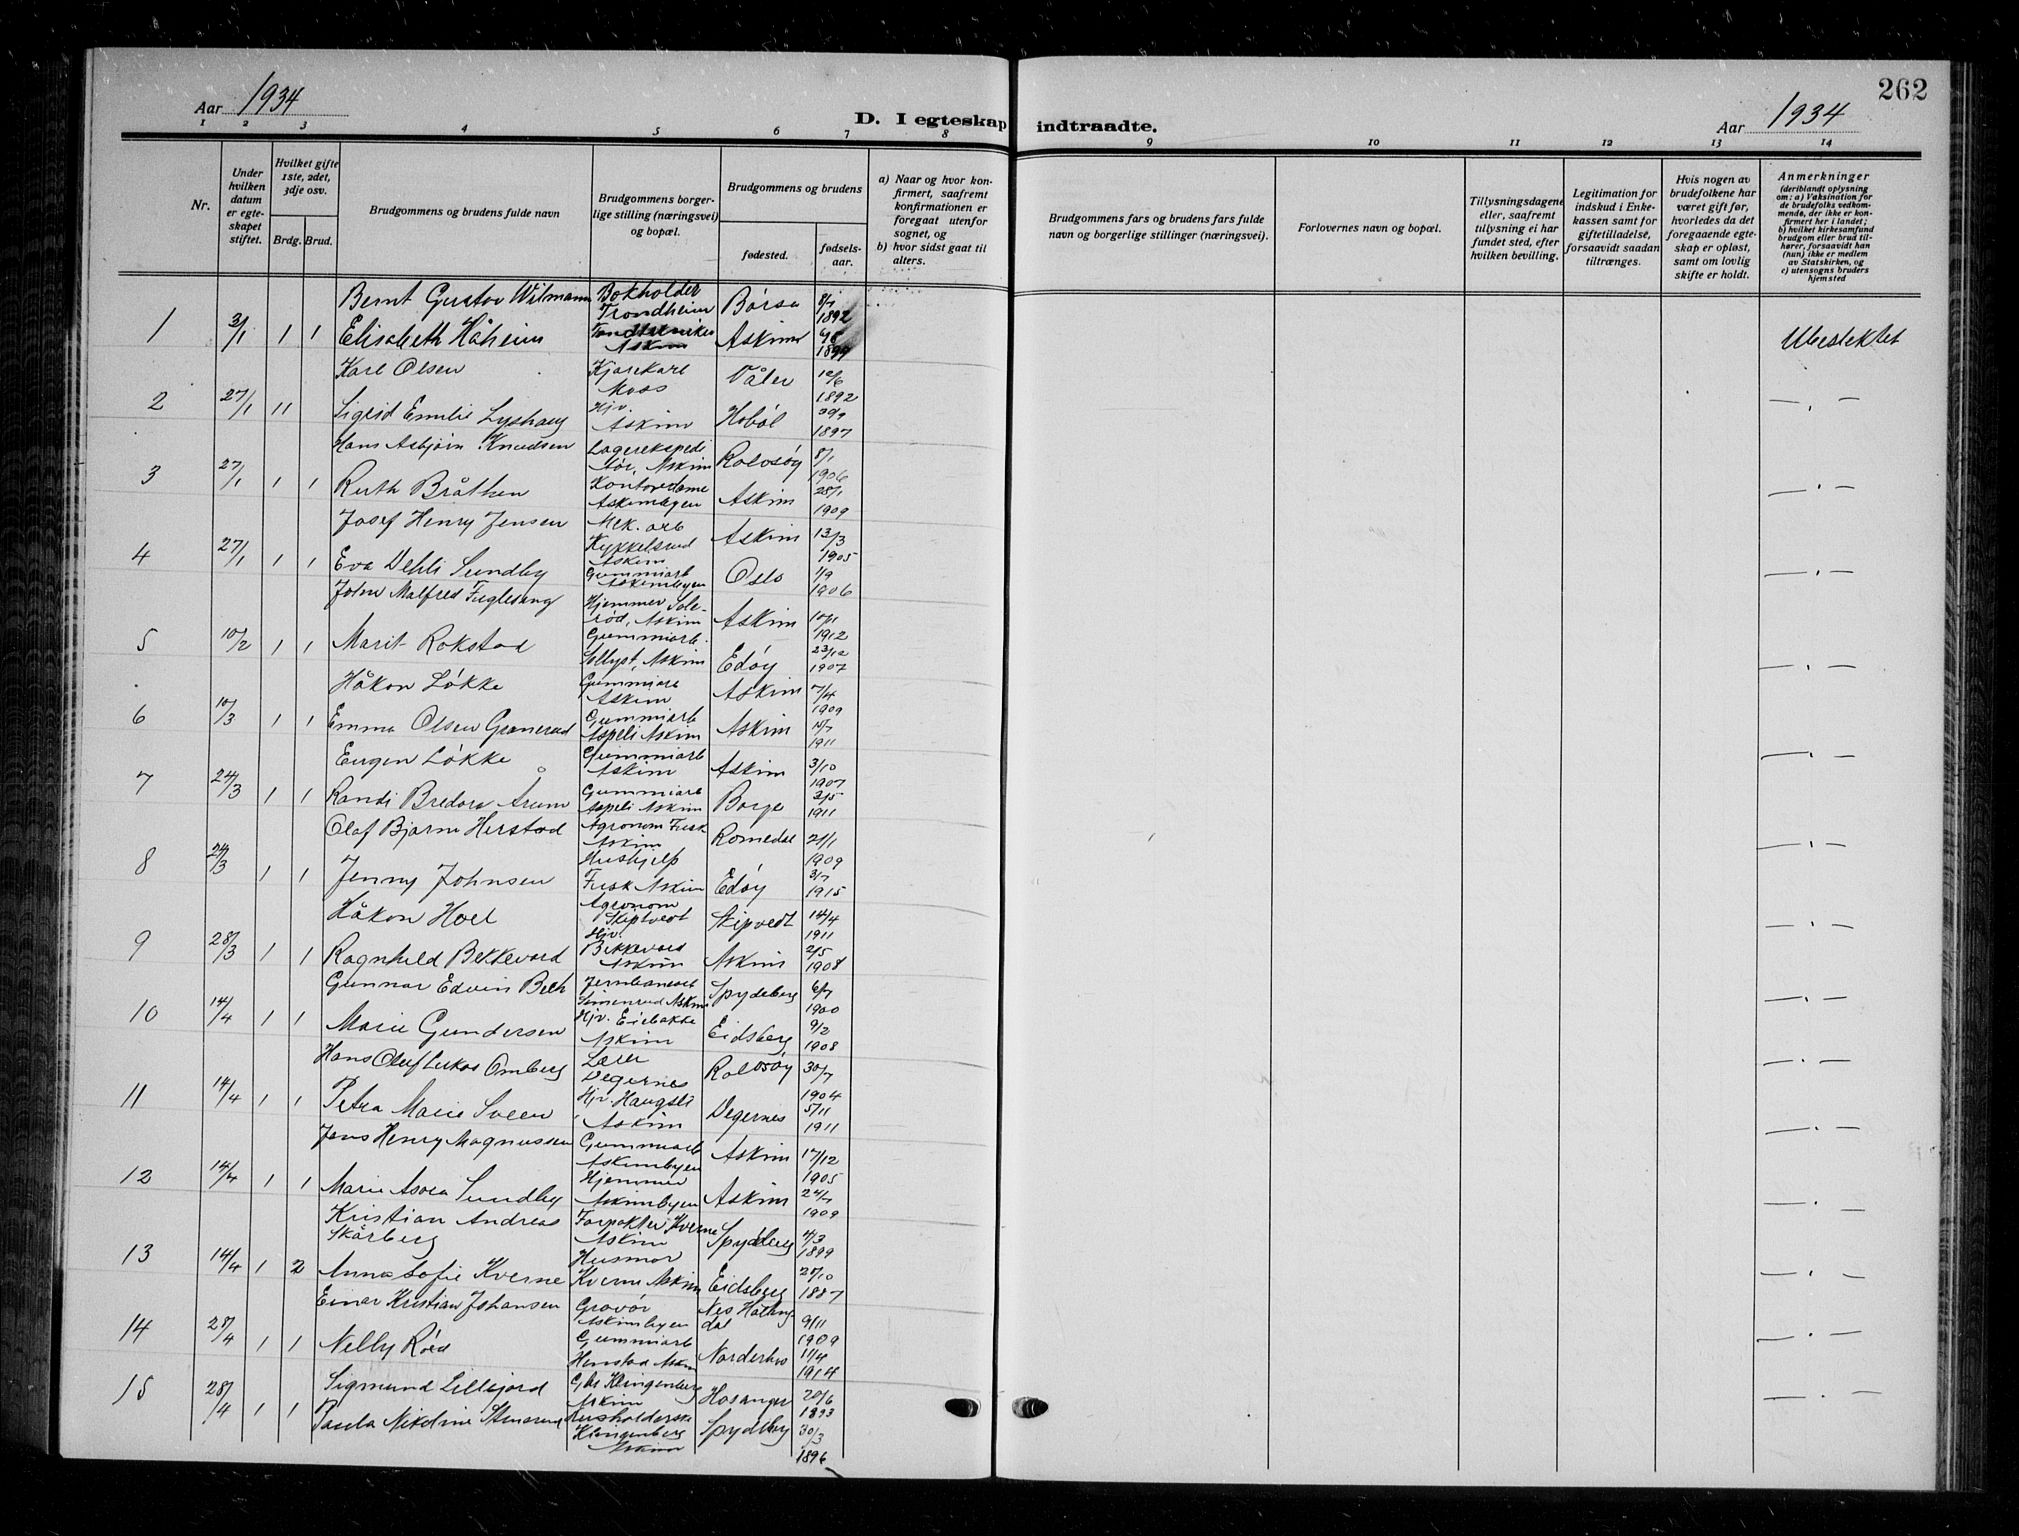 262
Aar 1934
Aar 1934
D. I egteskap indtraadte.
1 2 3 4 5 6 7 8 9 10 11 12 13 14
Nr.
Under hvilken datum er egteskapet stiftet.
Hvilket gifte 1ste, 2det, 3dje osv.
Brdg. Brud.
Brudgommens og brudens fulde navn
Brudgommens borgerlige stilling (næringsvei) og bopæl.
Brudgommens og brudens
fødested.
fødselsaar.
a) Naar og hvor konfirmert, saafremt konfirmationen er foregaat utenfor sognet, og
b) hvor sidst gaat til alters.
Brudgommens fars og brudens fars fulde navn og borgerlige stillinger (næringsvei).
Forlovernes navn og bopæl.
Tillysningsdagene eller, saafremt tillysning ei har fundet sted, efter hvilken bevilling.
Legitimation for indskud i Enkekassen samt for giftetilladelse, forsaavidt saadan tiltrænges.
Hvis nogen av brudefolkene har været gift før, hvorledes da det foregaaende egteskap er opløst, samt om lovlig skifte er holdt.
Anmerkninger
(deriblandt oplysning om: a) Vaksination for de brudefolks vedkommende, der ikke er konfirmert her i landet;
b) hvilket kirkesamfund brudgom eller brud tilhører, forsaavidt han (hun) ikke er medlem av Statskirken, og
c) utensogns bruders hjemsted
1 3/1 1 1 Bernt Gustav Wilmann Bokholder Trondheim Børsa 8/7 1892
Elisabeth Håheim Askim Askim Ubeslektet
2 27/1 1 1 Karl Olsen Kjørekarl Moss Våler 12/6 1892
Sigrid Emilie Lyshaug Hjv. Askim Hobøl 1897 — " —
3 27/1 1 1 Hans Asbjørn Knudsen Lagerekspeditør, Askim Rolvsøy 8/1 1906
Ruth Bråthen Kontordame Askimbyen Askim 28/1 1909 — " —
4 27/1 1 1 Josef Henry Jensen Mek. arb Kykkelsrud Askim Askim 13/3 1905
Eva Dehli Sundby Gummiarb Askimbyen Oslo 1/9 1906 — " —
5 10/2 1 1 John Malfred Fuglesang Hjemmev Solerød, Askim Askim 10/1 1912
Marit Rokstad Gummiarb. Sollyst, Askim Edøy 23/12 1907 — " —
6 10/3 1 1 Håkon Løkke Gummiarb Askim Askim 7/4 1909
Emma Olsen Granerud Gummiarb Aspeli Askim Askim 1911 — " —
7 24/3 1 1 Eugen Løkke Gummiarb Askim Askim 3/10 1907
Randi Bredora Årum Gummiarb Aspeli Askim Borge 3/5 1911 — " —
8 24/3 1 1 Olaf Bjarne Herstad Agronom Fusk Askim Romedal 21/1 1909
Jenny Johnsen Hushjelp Fusk Askim Edøy 3/7 1915 — " —
9 28/3 1 1 Håkon Hoel Agronom Skiptvedt Skipvedt 14/4 1911
Ragnhild Bekkevard Hjv. Bekkevard Askim Askim 2/5 1908 — " —
10 14/4 1 1 Gunnar Edvin Bech Simenrud Askim Spydeberg 6/7 1900
Marie Gundersen Hjv. Eidbakke Askim Eidsberg 9/2 1908 — " —
11 14/4 1 1 Hans Oluf Lukas Omberg Lærer Degernes Rolvsøy 30/7 1904
Petra Marie Sveen Hjv. Haugsli Askim Degernes 5/11 1911 — " —
12 14/4 1 1 Jens Henry Magnussen Gummiarb Askimbyen Askim 17/12 1905
Marie Asora Sundby Hjemmev Askimbyen Askim 1909 — " —
13 14/4 1 2 Kristian Andreas Skårberg Forpakter Kverne Askim Spydeberg 1899
Anna Sofie Kverne Husmor Kverne Askim Eidsberg 1887 — " —
14 28/4 1 1 Einar Kristian Johansen Gravør Askimbyen Nes Hallingdal 9/11 1909
Nelly Røed Gummiarb Henstad Askim Norderhov 11/4 1914 — " —
15 28/4 1 1 Sigmund Lillejord Gbr Klingenberg Askim Hosanger 20/6 1893
Paula Nikoline Stenersen Husholderske Klingenberg Askim Spydeberg 30/3 1896 — " —